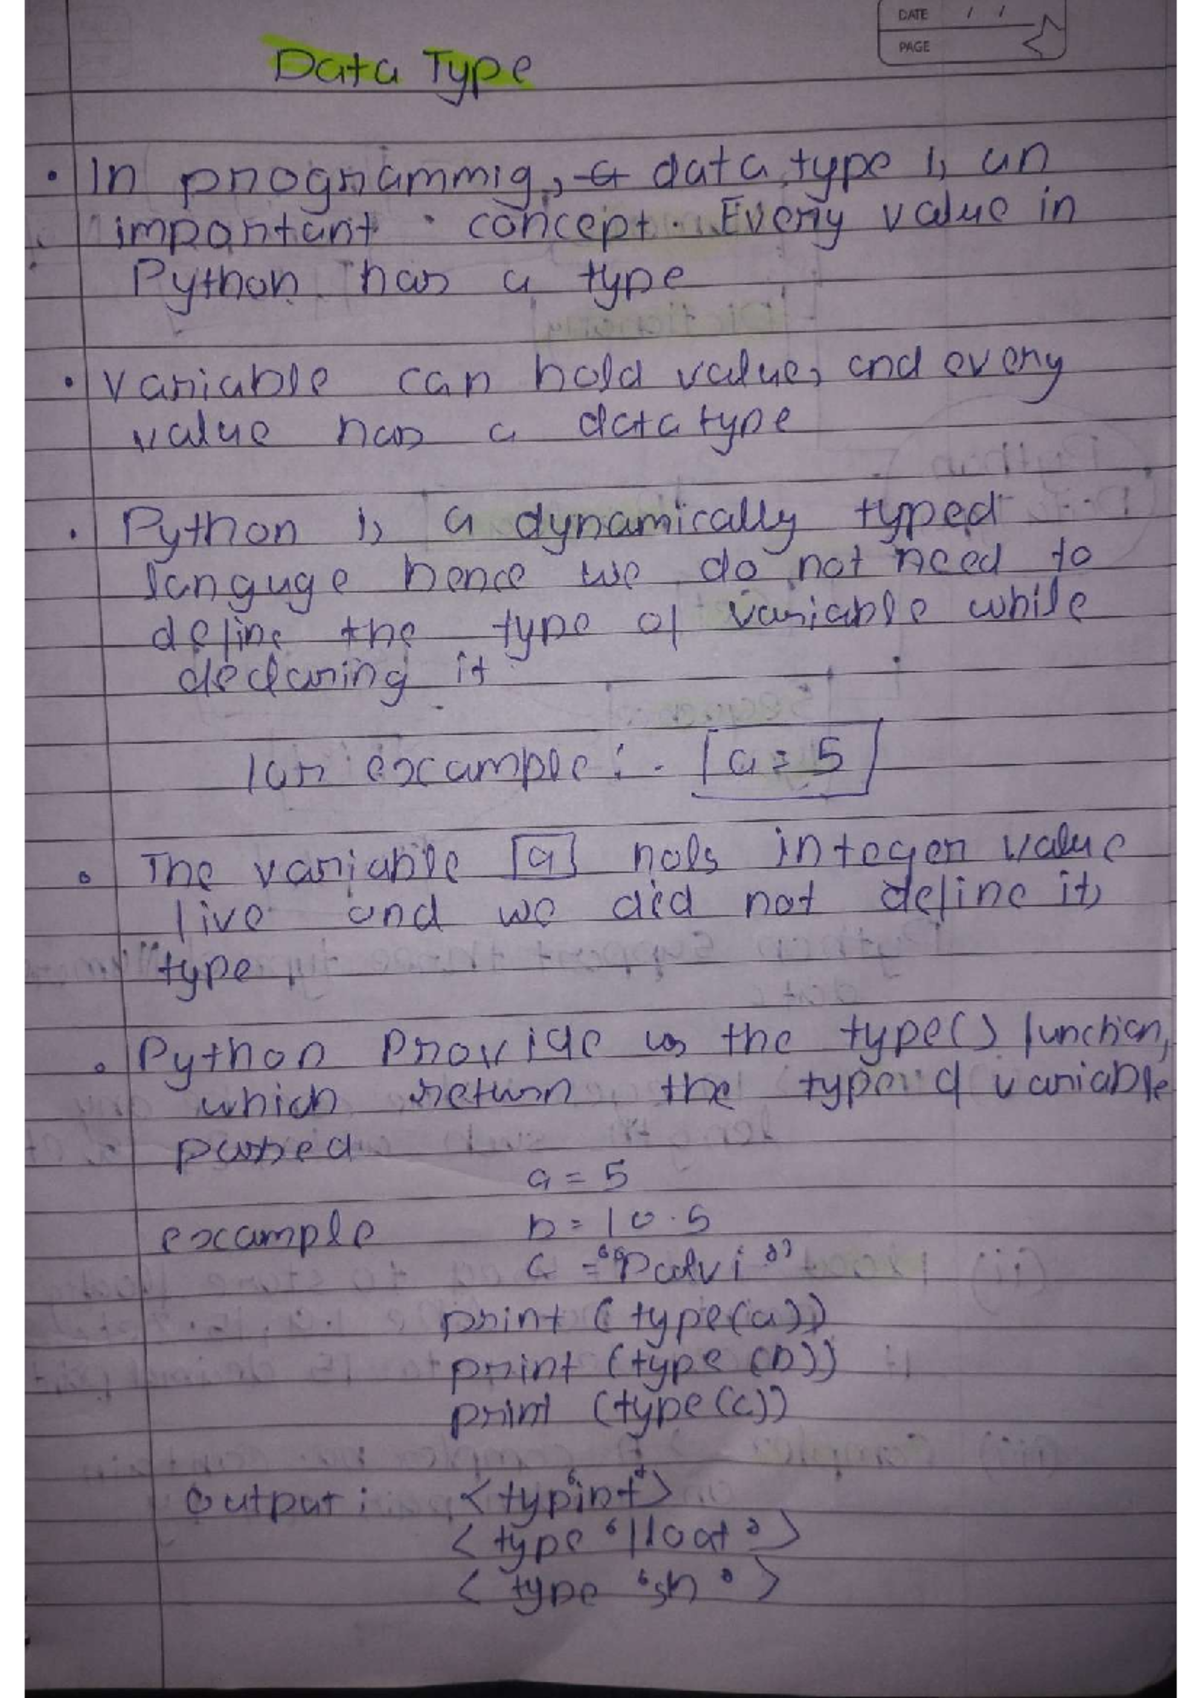 DATE / /
PAGE
Data Type
• In programmig, a data type is an
important concept. Every value in
Python has a type
• Variable can hold value, and every
value has a data type
• Python is a dynamically typed
languge hence we do not need to
define the type of variable while
declaring it
for example :- a = 5
• The variable a hols integer value
five and we did not define its
type
• Python Provide us the type() function,
which return the type of variable
passed
a = 5
example b = 10.5
c = "Palvi"
print (type(a))
print (type (b))
print (type(c))
output : <typ 'int'>
< type 'float'>
< type 'str'>